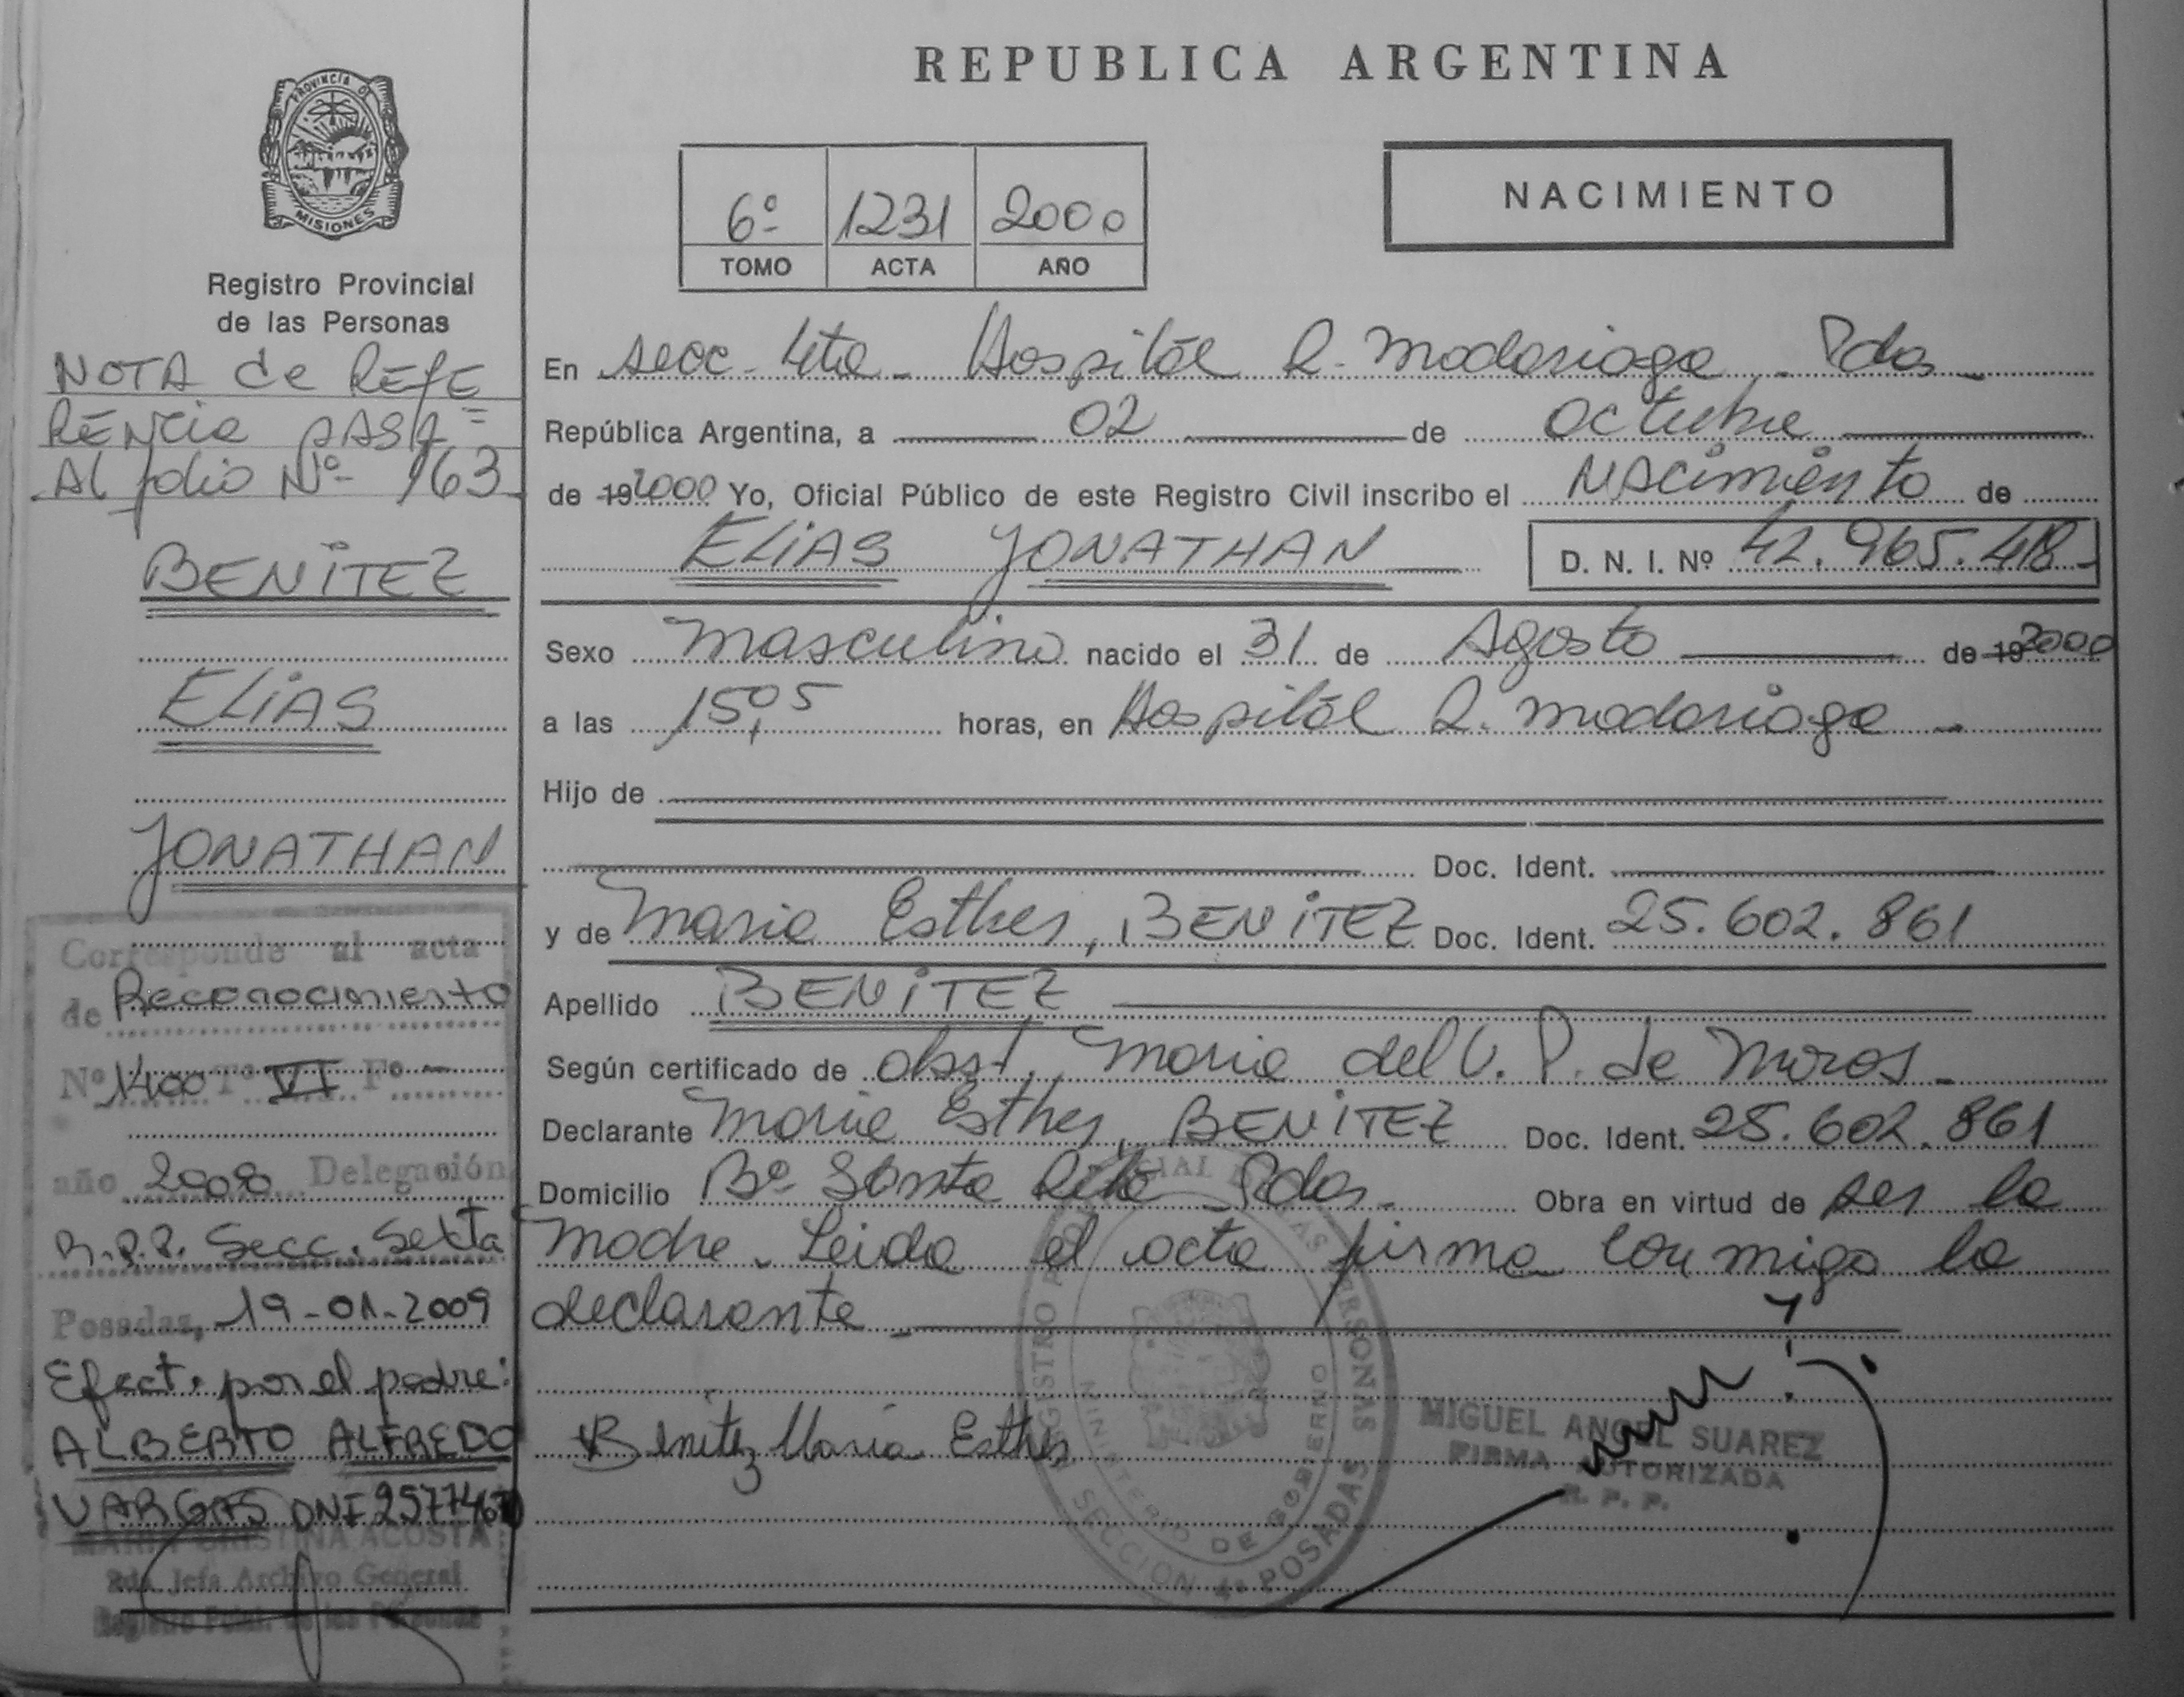 REPUBLICA ARGENTINA
PROVINCIA DE
MISIONES
Registro Provincial
de las Personas
NOTA de REFE
RENcia pASA
Al folio Nº 163
BENITEZ
ELIAS
JONATHAN
Corresponde al acta
de Reconocimiento
Nº 1400 Tº VI Fº —
año 2008 Delegación
R.P.P. Secc. Sexta
Posadas, 19-01-2009
Efect. por el padre:
ALBERTO ALFREDO
VARGAS DNI
MARIA CRISTINA ACOSTA
2da. Jefa Archivo General
Registro de las Personas
6º 1231 2000
TOMO ACTA AÑO
NACIMIENTO
En secc. 4ta - Hospitál R. Madariaga - Pdas -
República Argentina, a 02 de octubre
de 19 2000 Yo, Oficial Público de este Registro Civil inscribo el NAcimiento de
ELIAS JONATHAN D. N. I. Nº 42.965.418-
Sexo masculino nacido el 31 de Agosto de 19 2000
a las 15,05 horas, en Hospitál R. Madariaga -
Hijo de
Doc. Ident.
y de Maria Esther, BENITEZ Doc. Ident. 25.602.861
Apellido BENITEZ
Según certificado de obst. Maria del V. P. de Miros -
Declarante Maria Esther, BENITEZ Doc. Ident. 25.602.861
Domicilio Bº Santa Rita - Pdas. - Obra en virtud de ser la
madre. Leida el acta firma conmigo la
declarante -
Benitez Maria Esther
REGISTRO PROVINCIAL DE LAS PERSONAS
MINISTERIO DE GOBIERNO
SECCION 4ª POSADAS
MIGUEL ANGEL SUAREZ
FIRMA AUTORIZADA
R. P. P.